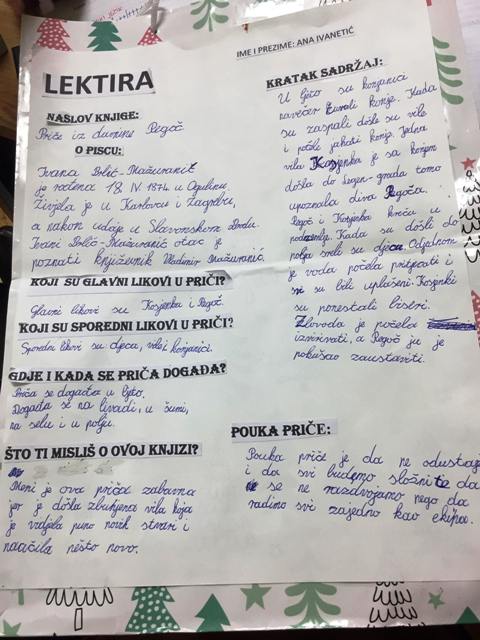 IME I PREZIME: ANA IVANETIĆ
LEKTIRA
NASLOV KNJIGE:
Priče iz davnine Regoč
O PISCU:
Ivana Brlić-Mažuranić
je rođena 18. IV. 1874. u Ogulinu.
Živjela je u Karlovcu i Zagrebu,
a nakon udaje u Slavonskom Brodu.
Ivani Brlić-Mažuranić otac je
poznati književnik Vladimir Mažuranić.
KOJI SU GLAVNI LIKOVI U PRIČI?
Glavni likovi su Kosjenka i Regoč.
KOJI SU SPOREDNI LIKOVI U PRIČI?
Sporedni likovi su djeca, vile, konjanici.
GDJE I KADA SE PRIČA DOGAĐA?
Priča se događa u ljeto.
Događa se na livadi, u šumi,
na selu i u polju.
ŠTO TI MISLIŠ O OVOJ KNJIZI?
Meni je ova priča zabavna
jer je došla zbunjena vila koja
je vidjela puno novih stvari i
naučila nešto novo.
KRATAK SADRŽAJ:
U ljeto su konjanici
navečer čuvali konje. Kada
su zaspali došle su vile
i počele jahati konje. Jedna
vila Kosjenka je sa konjem
došla do Legen-grada tamo
upoznala diva Regoča.
Regoč i Kosjenka kreću u
podzemlje. Kada su došli do
polja sreli su djecu. Odjednom
je voda počela pritjecati i
svi su bili uplašeni. Kosjenki
su ponestali biseri.
Zlovoda je počela
izvirivati, a Regoč ju je
pokušao zaustaviti.
POUKA PRIČE:
Pouka priče je da ne odustaje
i da svi budemo složni te da
se ne razdvajamo nego da
radimo svi zajedno kao ekipa.